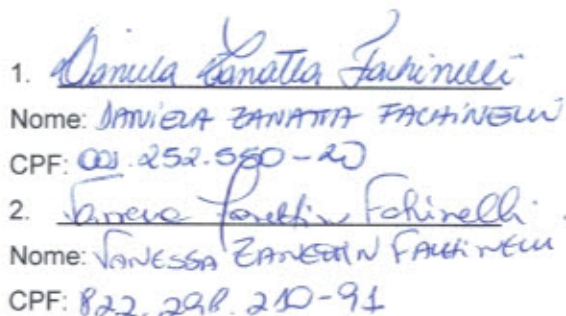 1. Daniela Zanatta Fachinelli
Nome: DANIELA ZANATTA FACHINELLI
CPF: 001.252.580-20
2. Vanessa Zanettin Fachinelli
Nome: VANESSA ZANETTIN FACHINELLI
CPF: 822.298.210-91